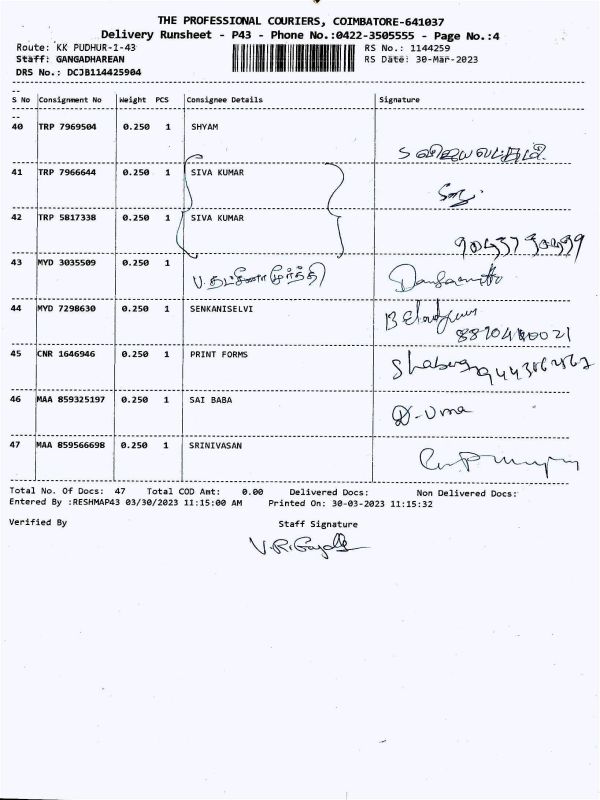 THE PROFESSIONAL COURIERS, COIMBATORE-641037
Delivery Runsheet - P43 - Phone No.:0422-3505555 - Page No.:4
Route: KK PUDHUR-1-43 RS No.: 1144259
Staff: GANGADHAREAN RS Date: 30-Mar-2023
DRS No.: DCJB114425904
S No Consignment No Weight PCS Consignee Details Signature
40 TRP 7969504 0.250 1 SHYAM
41 TRP 7966644 0.250 1 SIVA KUMAR
42 TRP 5817338 0.250 1 SIVA KUMAR
43 MYD 3035509 0.250 1
44 MYD 7298630 0.250 1 SENKANISELVI
45 CNR 1646946 0.250 1 PRINT FORMS
46 MAA 859325197 0.250 1 SAI BABA D-Uma
47 MAA 859566698 0.250 1 SRINIVASAN
Total No. Of Docs: 47 Total COD Amt: 0.00 Delivered Docs: Non Delivered Docs:
Entered By :RESHMAP43 03/30/2023 11:15:00 AM Printed On: 30-03-2023 11:15:32
Verified By Staff Signature